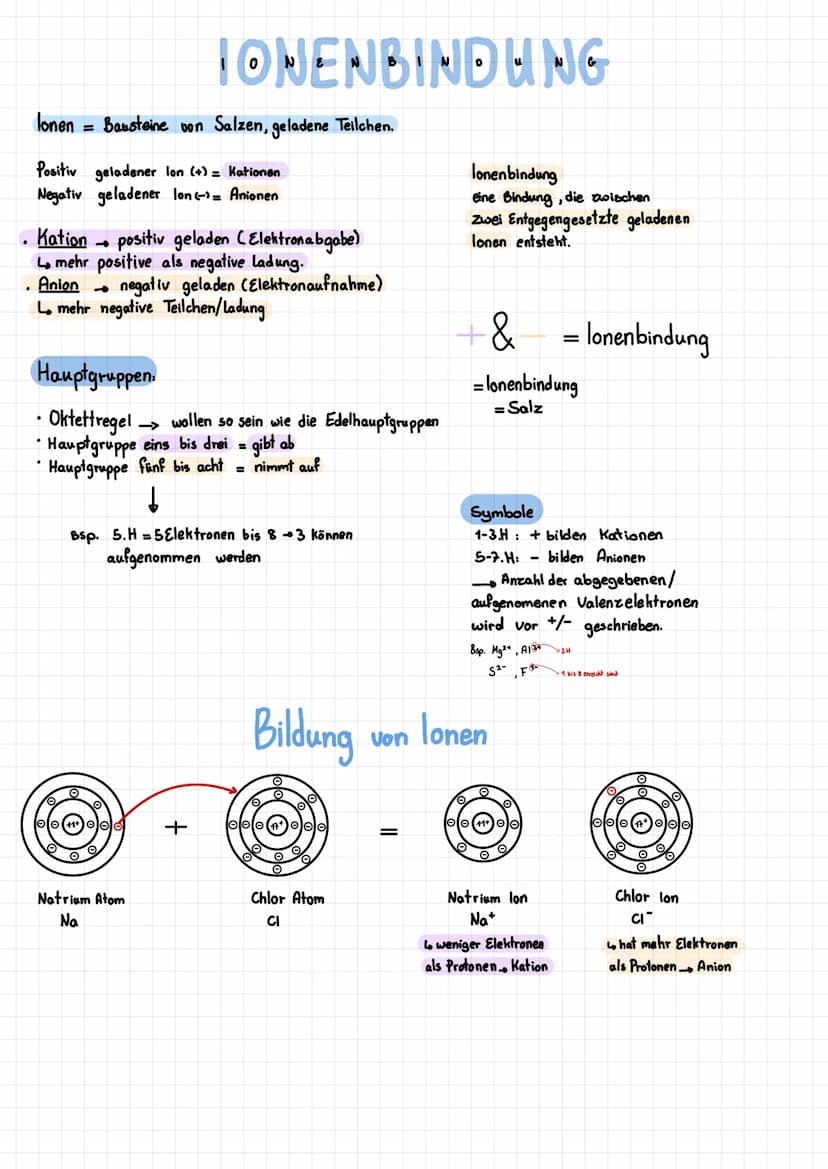 IONENBINDUNG
IONENBINDUNG
Ionen = Bausteine von Salzen, geladene Teilchen.
Positiv geladener Ion (+) = Kationen
Negativ geladener Ion (-) = Anionen
• Kation → positiv geladen (Elektronabgabe)
↳ mehr positive als negative Ladung.
• Anion → negativ geladen (Elektronaufnahme)
↳ mehr negative Teilchen/ladung
Ionenbindung
eine Bindung, die zwischen
zwei Entgegengesetzte geladenen
Ionen entsteht.
+ & - = Ionenbindung
= Ionenbindung
= Salz
Hauptgruppen:
• Oktettregel → wollen so sein wie die Edelhauptgruppen
• Hauptgruppe eins bis drei = gibt ab
• Hauptgruppe fünf bis acht = nimmt auf
↓
Bsp. 5.H = 5 Elektronen bis 8 → 3 können
aufgenommen werden
Symbole
1-3.H : + bilden Kationen
5-7.H: - bilden Anionen
→ Anzahl der abgegebenen/
aufgenomenen Valenzelektronen
wird vor +/- geschrieben.
Bsp. Mg²⁺, Al³⁺
S²⁻, F¹⁻ 1 bis 8 erreicht sind
Bildung von Ionen
11+ + 17+ = 11+ 17+
Natrium Atom Chlor Atom Natrium Ion Chlor Ion
Na Cl Na⁺ Cl⁻
↳ weniger Elektronen
als Protonen → Kation
↳ hat mehr Elektronen
als Protonen → Anion